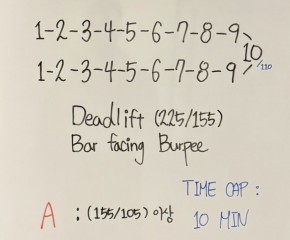 1-2-3-4-5-6-7-8-9
10
/110
1-2-3-4-5-6-7-8-9
Deadlift (225/155)
Bar facing Burpee
TIME CAP :
A : (155/105) 이상
10 MIN